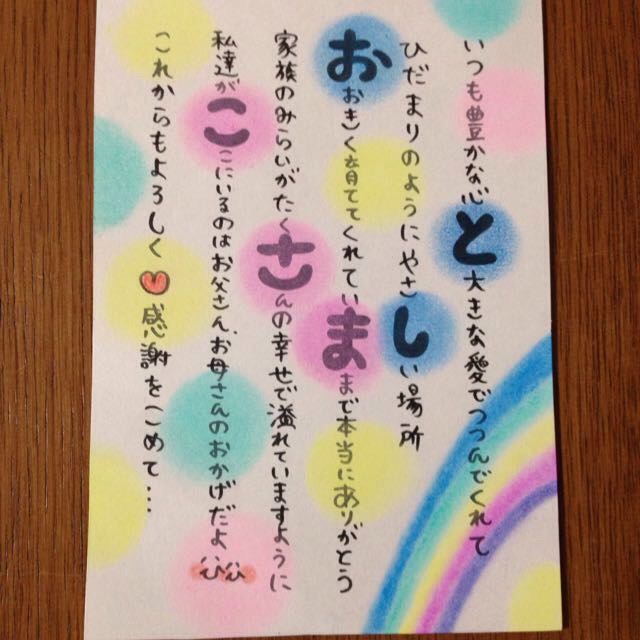 いつも豊かな心と大きな愛でつつんでくれて
ひだまりのようにやさしい場所
おおきく育ててくれていままで本当にありがとう
家族のみらいがたくさんの幸せで溢れていますように
私達がここにいるのはお父さん、お母さんのおかげだよ
これからもよろしく♥感謝をこめて…